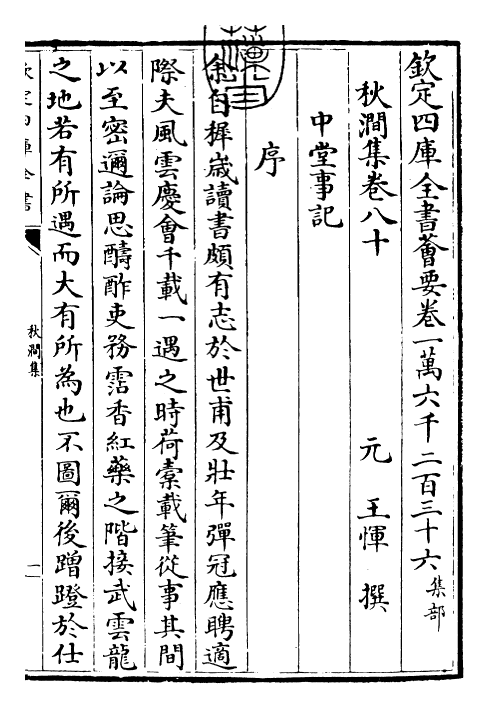 欽定四庫全書薈要卷一萬六千二百三十六集部
秋澗集卷八十
元　王惲　撰
中堂事記
序
余自穉嵗讀書頗有志於世甫及壯年彈冠應聘適
際夫風雲慶會千載一遇之時荷橐載筆從事其間
以至密邇論思酧酢吏務霑香紅藥之階接武雲龍
之地若有所遇而大有所為也不圖爾後蹭蹬於仕
欽定四庫全書
秋澗集
一